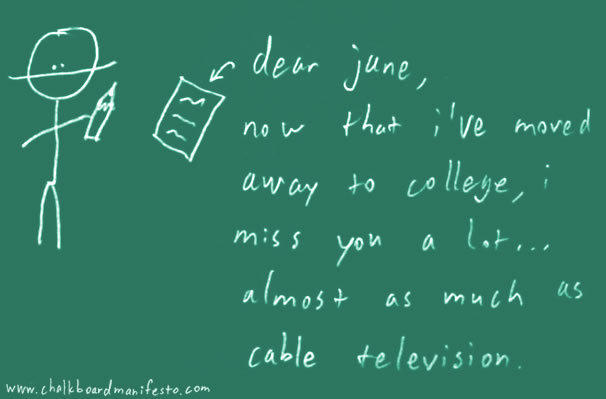 dear june,
now that i've moved
away to college, i
miss you a lot...
almost as much as
cable television.
www.chalkboardmanifesto.com